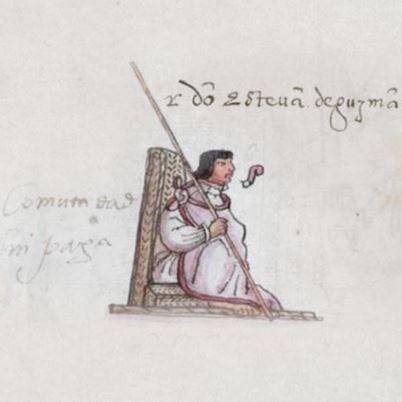 r dõ Estevã deguzmã
Comunidad
ni paga